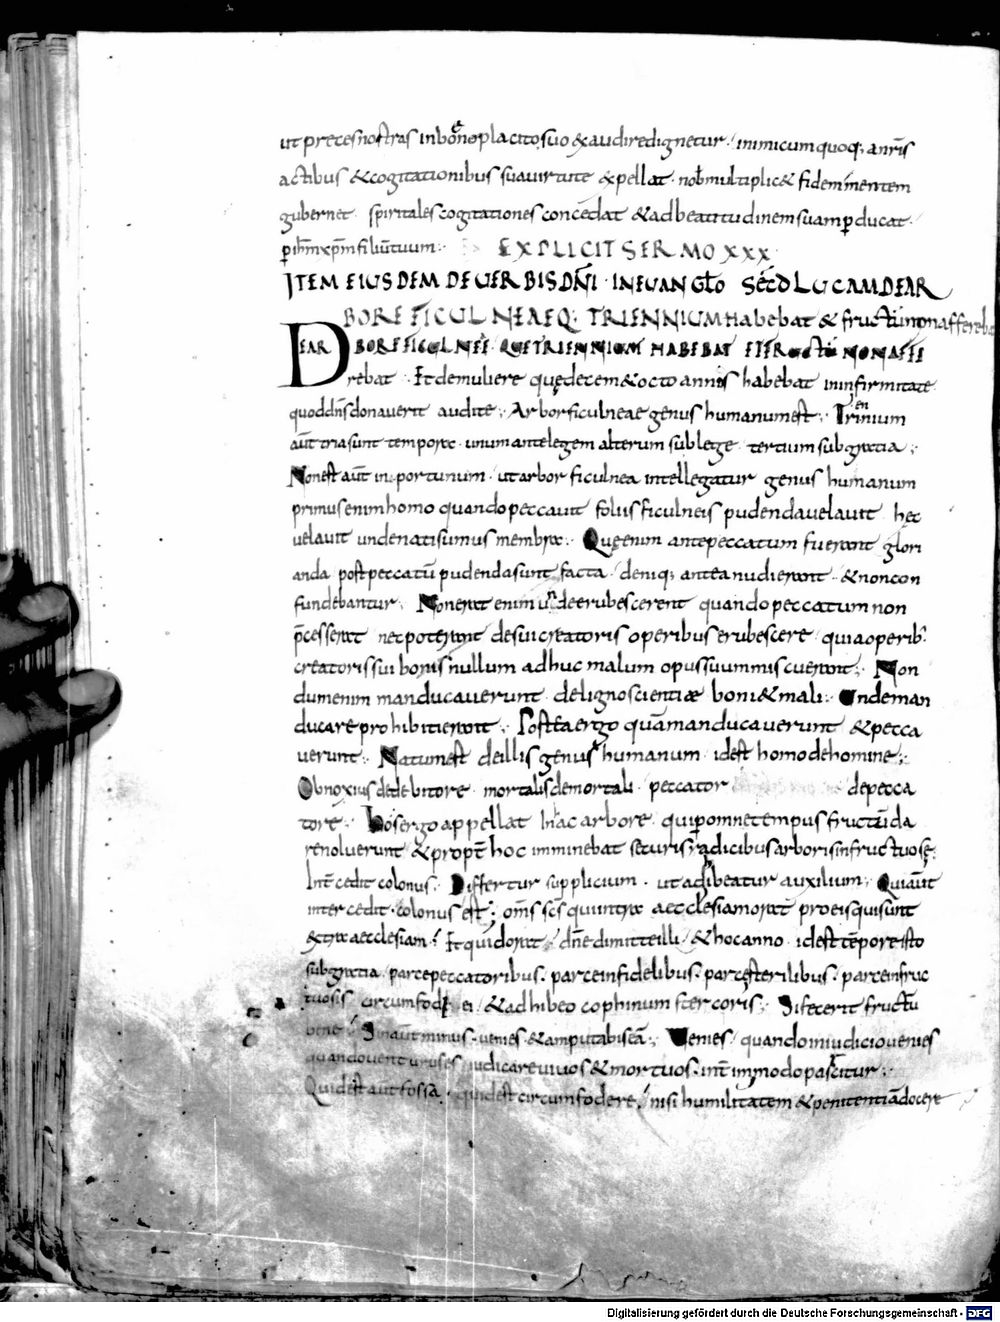 ut preces nostras in bono placito suo &audire dignetur. inimicum quoq; a nr̄is
actibus & cogitationibus sua uirtute expellat. nob̄ multiplic& fidem mentem
gubernet. spiritales cogitationes concedat & ad beatitudinem suam p̱ducat.
p̱ ih̄m xp̄m filiū tuum.
EXPLICIT SERMO XXX
ITEM EIUSDEM DE UERBIS DN̄I IN EUANGL̄O SEC̄D LUCAM DE AR
BORE FICULNEA EQ; TRIENNIUM habebat & fructū non affereb
DE ARBORE FICULNEE QUE TRIENNIUM HABEBAT ET FRUCTŪ NON AFFE
rebat. Et de muliere quę decem & octo annis habebat in infirmitate
quod dn̄s donauerit audite; Arbor ficulneae genus humanum est; Triennium
aūt tria sunt tempora. unum ante legem alterum sub lege. tertium sub gratia;
Non est aūt inportunum. ut arbor ficulnea intellegatur genus humanum
primus enim homo quando peccauit foliis ficulneis pudenda uelauit. hec
uelauit unde nati sumus membra. Quę enim ante peccatum fuerant glori
anda post peccatū pudenda sunt facta. deniq; antea nudi erant. & non con
fundebantur. Non erat enim un̄ de erubescerent quando peccatum non
p̄cesserat nec poterant de sui creatoris operibus erubescere. quia operib;
creatoris sui bonis nullum adhuc malum opus suum miscuerant; Non
dum enim manducauerunt de ligno scientiae boni & mali. Unde man
ducare prohibiti erant; Postea ergo quā manducauerunt & pecca
uerunt; Natum est de illis genus humanum. id est homo de homine;
Obnoxius de debitore. mortalis de mortali. peccator de pecca
tore; Hos ergo appellat hac arbore. qui p̱ omne tempus fructū da
re noluerunt & propt̄ hoc imminebat securis radicibus arboris infructuosę;
Int̄cedit colonus. Differtur supplicium. ut adhibeatur auxilium; Qui aūt
intercedit. colonus est; om̄s sc̄s qui intra aecclesiam orat pro eis qui sunt
extra aecclesiam. Et quid orat. dn̄e dimitte illi & hoc anno. id est tēpore isto
sub gratia. parce peccatoribus. parce infidelibus. parce sterilibus. parce infruc
tuosis. circumfod ei & adhibeo cophinum stercoris. Si fecerit fructū
bene. Sin aūt minus. uenies & amputabis eā; Uenies quando in iudicio uenies
quando uenturus es iudicare uiuos & mortuos. int̄im modo parcitur;
Quid est aūt fossa. quid est circumfodere. nisi humilitatem & penitentiā docere
Digitalisierung gefördert durch die Deutsche Forschungsgemeinschaft - DFG